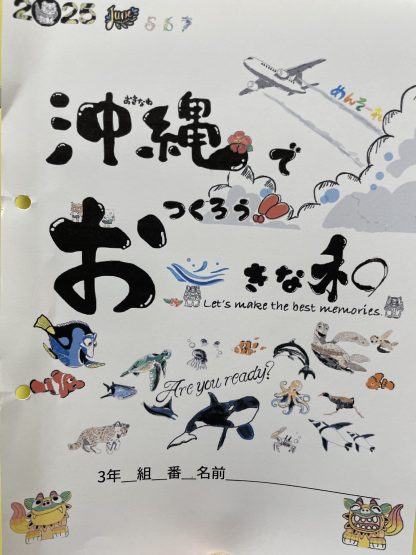 2025 June 5 6 7
めんそーれ
おきなわ
沖縄で
つくろう!
お きな和
Let's make the best memories.
Are you ready?
3年__組__番__名前____________